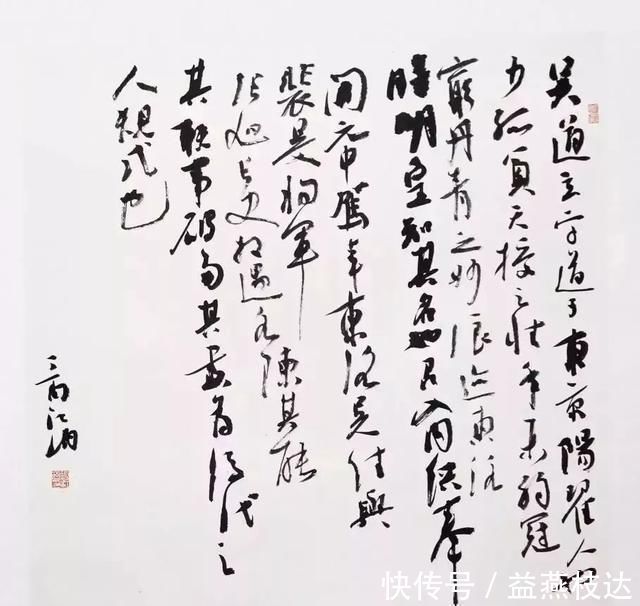 吴道玄字道子東京陽翟人也
少孤貧天授之性年未弱冠
窮丹青之妙浪迹東洛
時明皇知其名召入内供奉
開元中駕幸東洛吴生與
裴旻将軍
張旭長史相遇各陳其能
其軼事頗多其畫為後代之
人規式也
快传号 / 益燕枝达